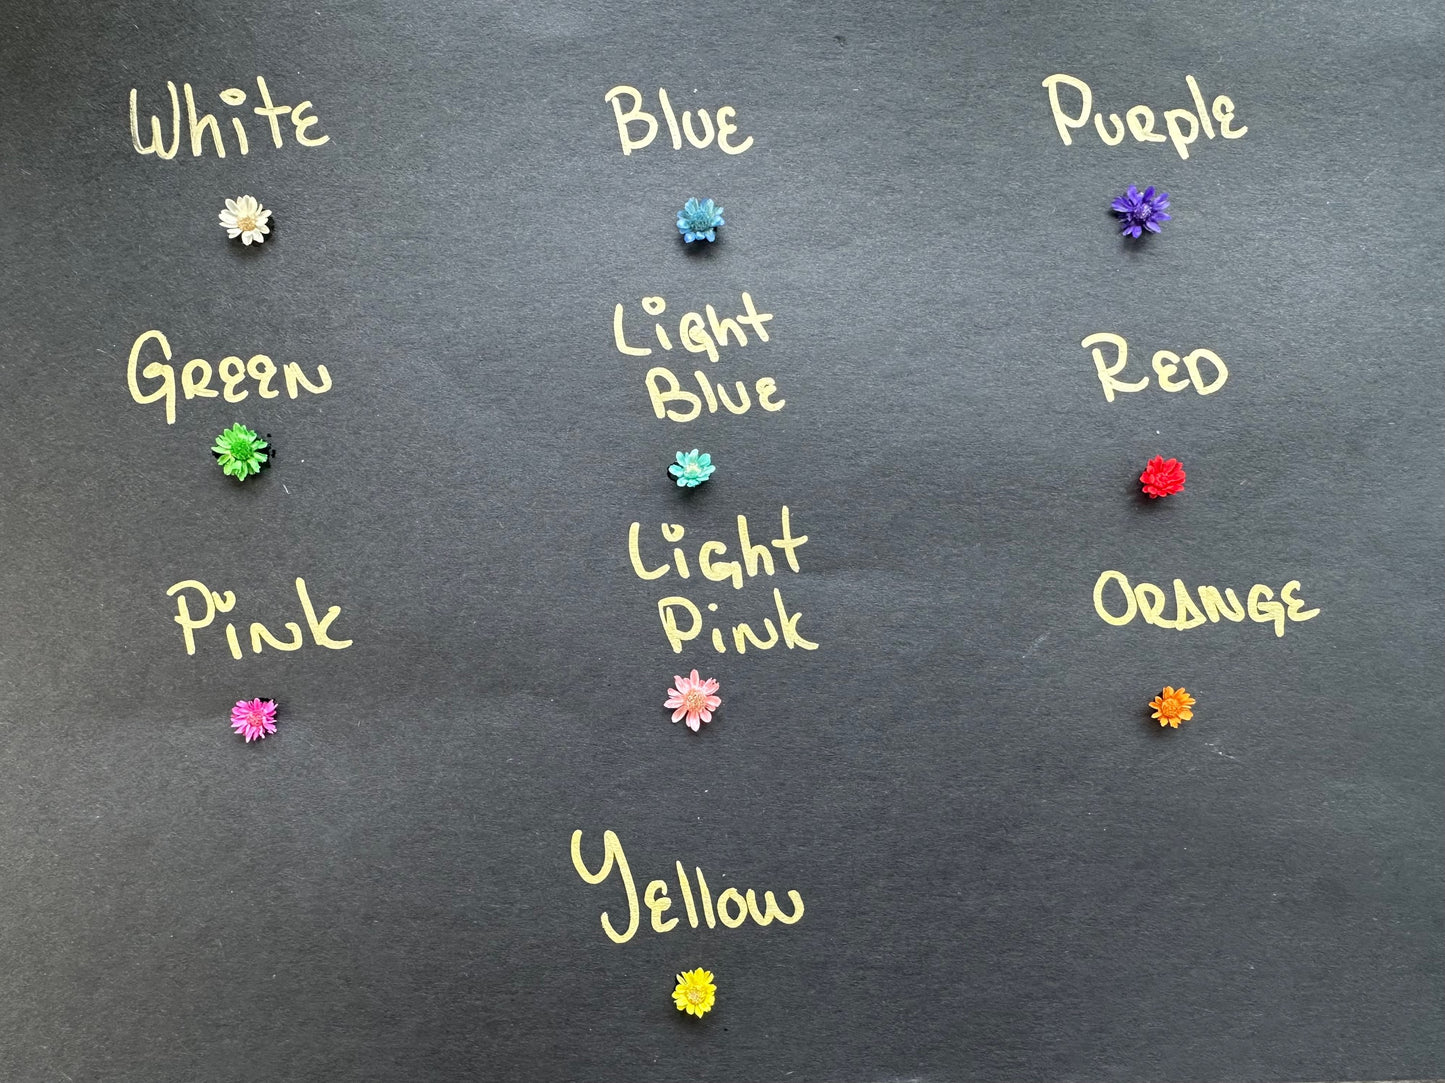 White
Blue
Purple
Green
Light
Blue
Red
Pink
Light
Pink
Orange
Yellow